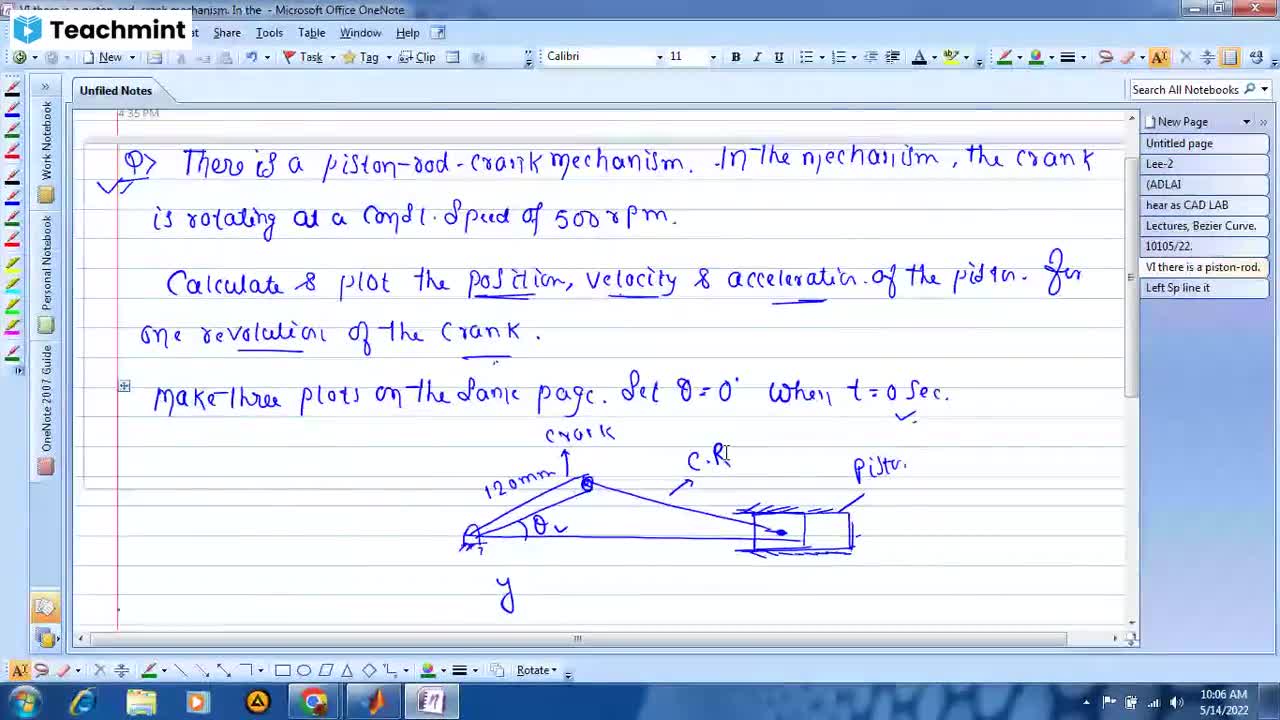 VI there is a piston-rod, crank mechanism. In the - Microsoft Office OneNote
Teachmint
Share Tools Table Window Help
New Task Tag Clip Calibri 11 B I U A
Unfiled Notes
Search All Notebooks
4:35 PM
New Page
Untitled page
Lee-2
(ADLAI
hear as CAD LAB
Lectures, Bezier Curve.
10105/22.
VI there is a piston-rod.
Left Sp line it
Work Notebook
Personal Notebook
OneNote 2007 Guide
Q> There is a piston-rod-crank mechanism. In the mechanism, the crank
is rotating at a const. speed of 500 rpm.
Calculate & plot the position, velocity & acceleration of the piston. for
one revolution of the crank.
Make three plots on the same page. Set θ = 0° when t = 0 sec.
crank
120mm
C.R
Piston.
θ
y
Rotate
10:06 AM
5/14/2022